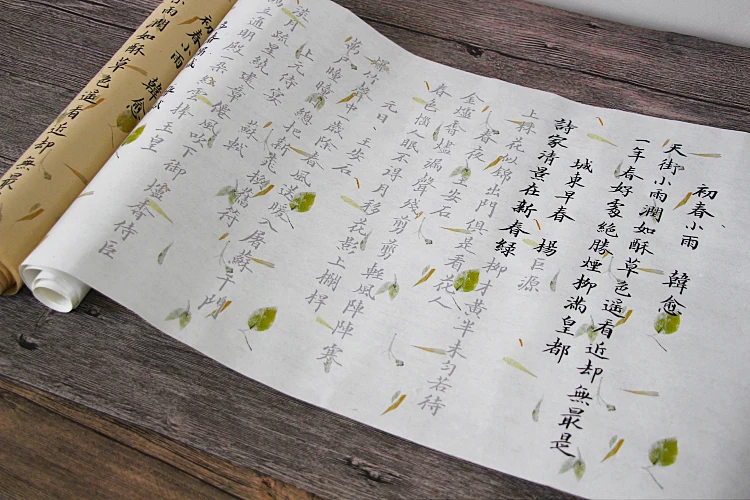 初春小雨 韓愈
天街小雨潤如酥草色遙看近却無最是
一年春好處絕勝煙柳滿皇都
城東早春 楊巨源
詩家清景在新春綠柳才黃半未勻若待
上林花似錦出門俱是看花人
春夜 王安石
金爐香燼漏聲殘剪剪輕風陣陣寒
春色惱人眠不得月移花影上欄桿
元日 王安石
爆竹聲中一歲除春風送暖入屠蘇千門
萬戶曈曈日總把新桃換舊符
上元侍宴 蘇軾
淡月疏星繞建章僊風吹下御爐香侍臣
立通明殿一朵紅雲捧玉皇
初春小雨 韓愈
小雨潤如酥草色遙看近却無最